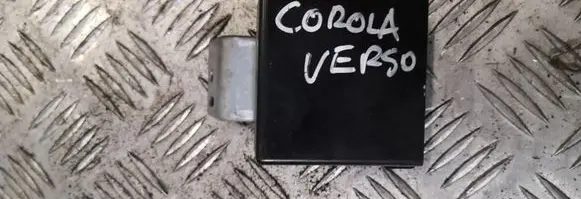 COROLA
VERSO